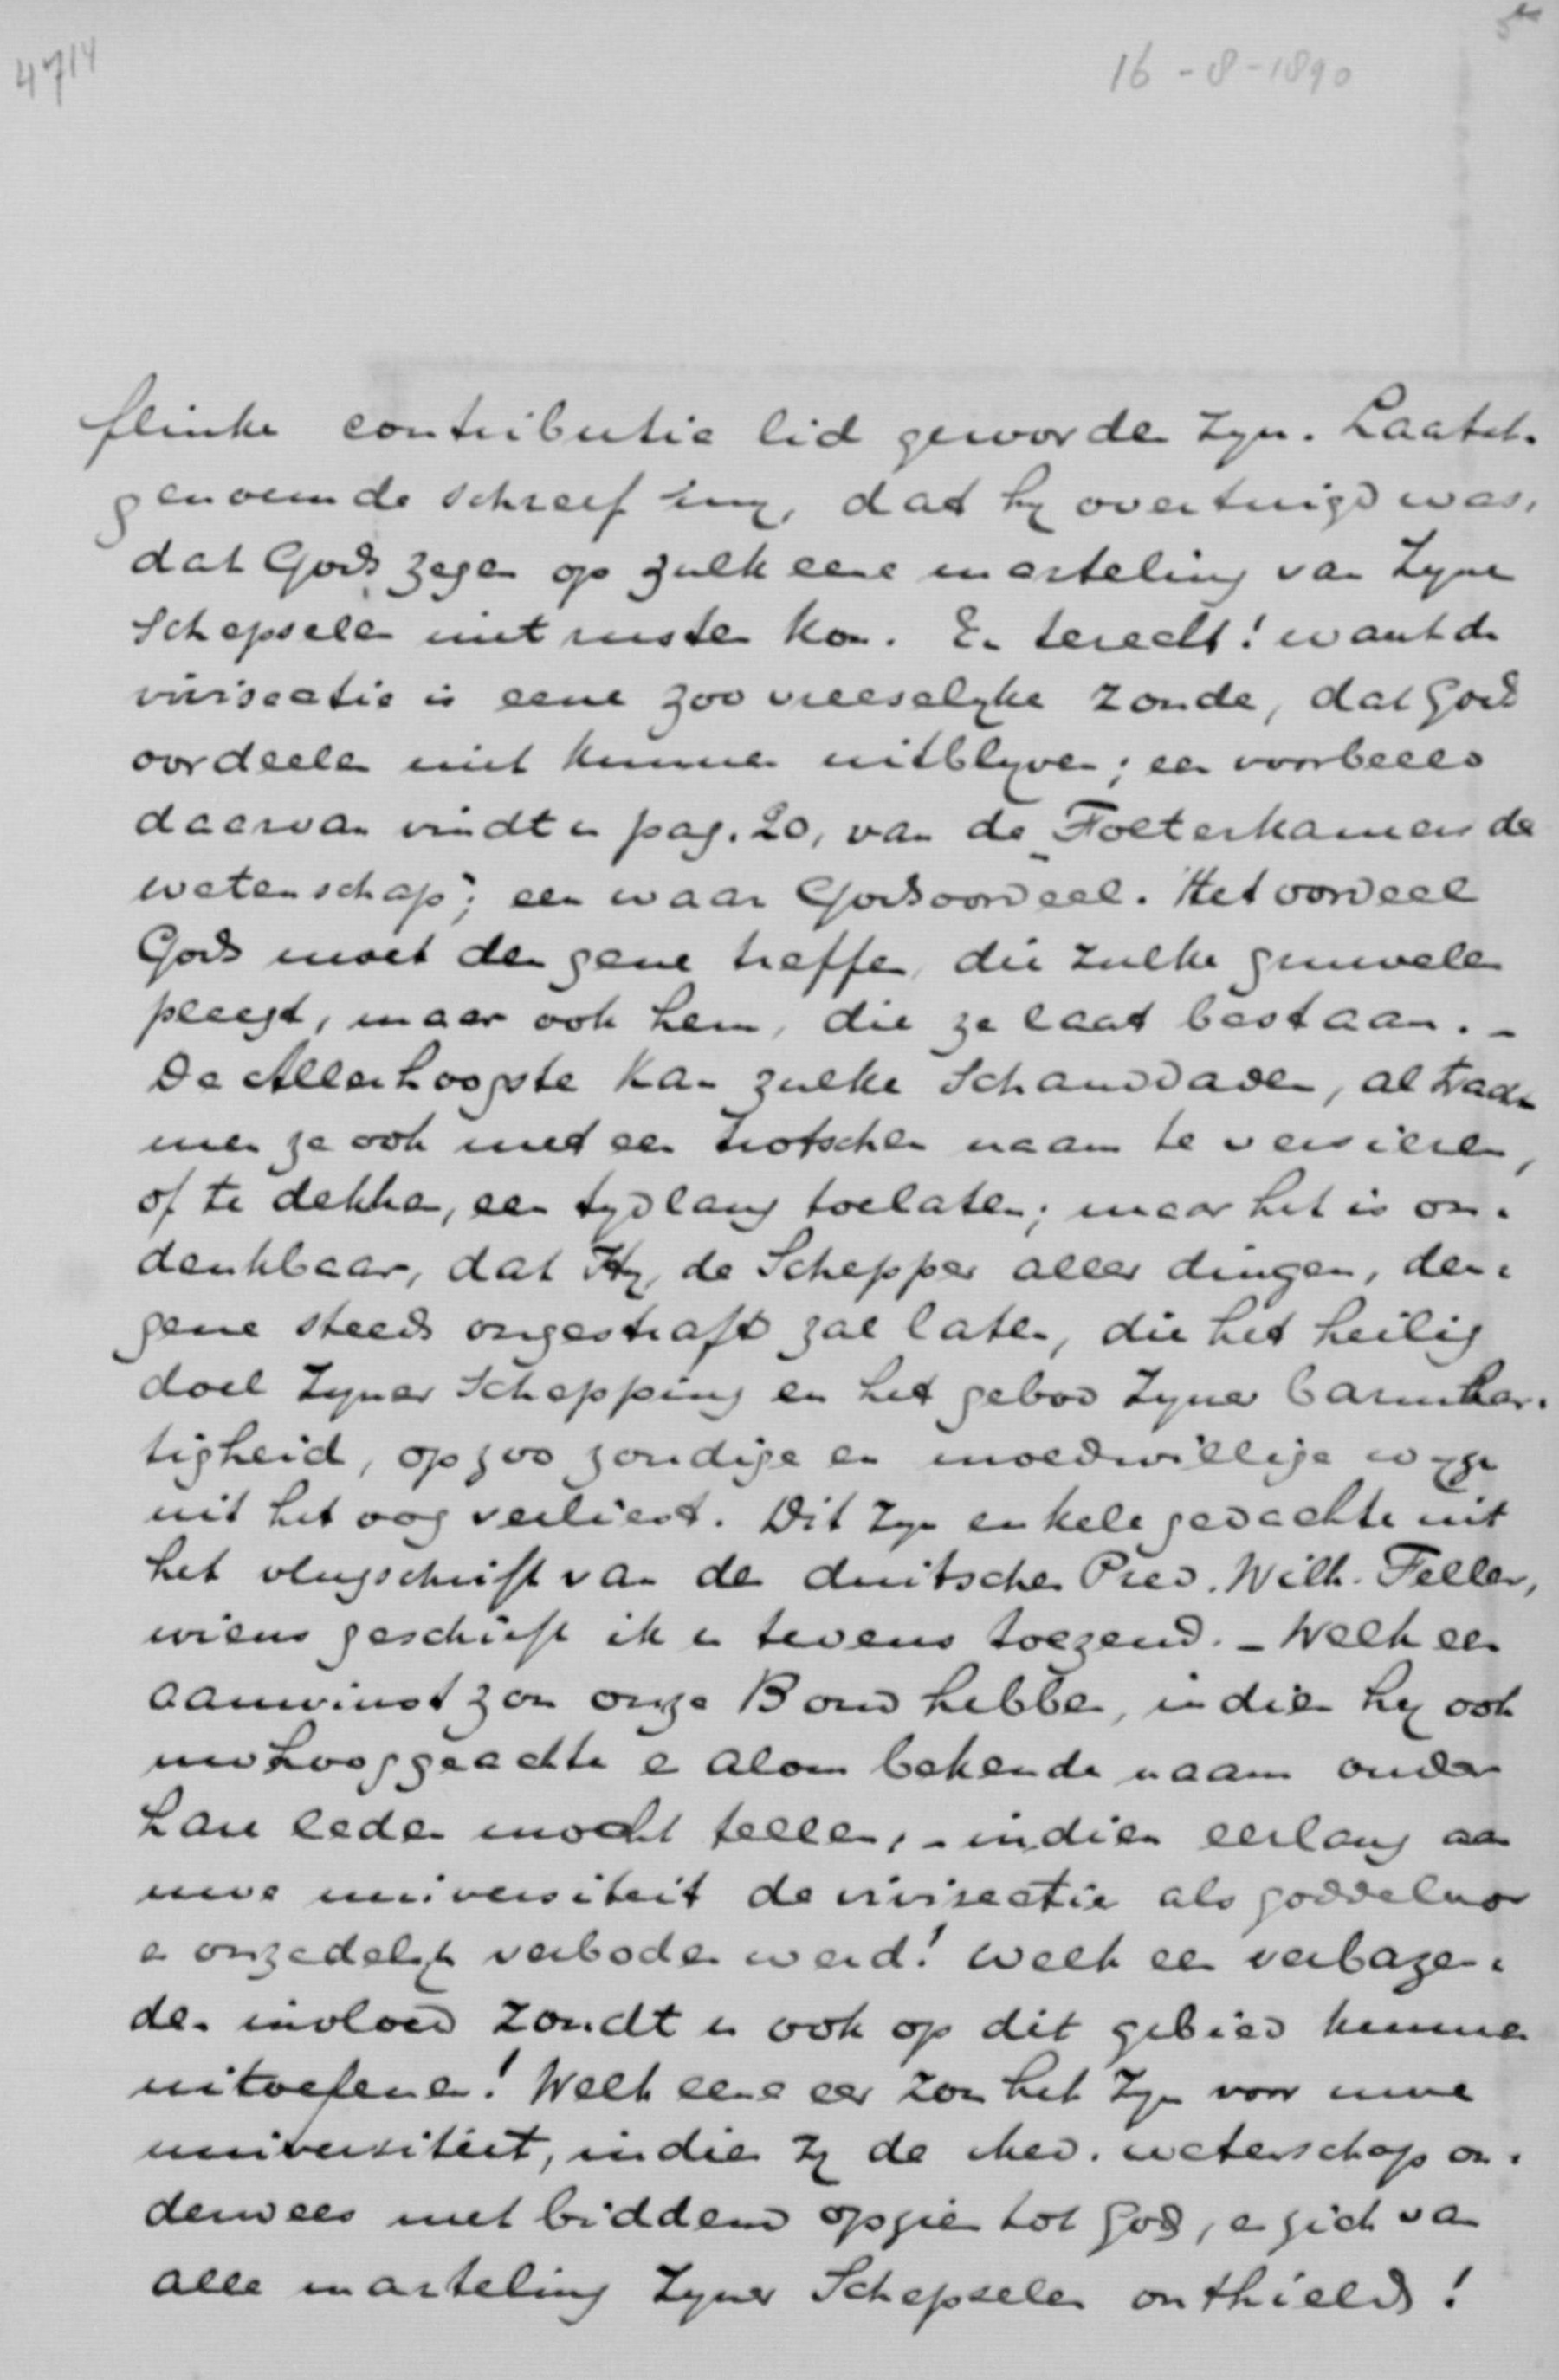 4714
16-8-1890
flinke contributie lid geworden zyn. Laatst-
genoemde schreef my, dat hy overtuigd was,
dat Gods zegen op zulk eene marteling van Zyne
Schepselen niet rusten kon. En terecht! want de
vivisectie is eene zoo vreeselyke zonde, dat Gods
oordeelen niet kunnen uitblyven; een voorbeeld
daarvan vindt u pag. 20, van de „Folterkamers der
wetenschap"; een waar Godsoordeel. Het oordeel
Gods moet den gene treffen, die zulke gruwelen
pleegt, maar ook hem, die ze laat bestaan. –
De Allerhoogste kan zulke Schanddaden, al tracht
men ze ook met een trotschen naam te versieren,
of te dekken, een tydlang toelaten; maar het is on-
denkbaar, dat Hy, de Schepper aller dingen, den-
gene steeds ongestraft zal laten, die het heilig
doel Zyner Schepping en het gebod Zyner barmhar-
tigheid, op zoo zondige en moedwillige wyze
uit het oog verliest. Dit zyn enkele gedachten uit
het vlugschrift van den duitschen Pred. Wilh. Feller,
wiens geschrift ik u tevens toezend. – Welk een
aanwinst zou onze Bond hebben, indien hy ook
uw hooggeachte en alom bekende naam onder
hare leden mocht tellen, – indien eerlang aan
uwe universiteit de vivisectie als goddeloos
en onzedelyk verboden werd! Welk een verbazen-
den invloed zoudt u ook op dit gebied kunnen
uitoefenen! Welk eene eer zou het zyn voor uwe
universiteit, indien zy de med. wetenschap on-
derwees met biddend opzien tot God, en zich van
alle marteling Zyner Schepselen onthield!